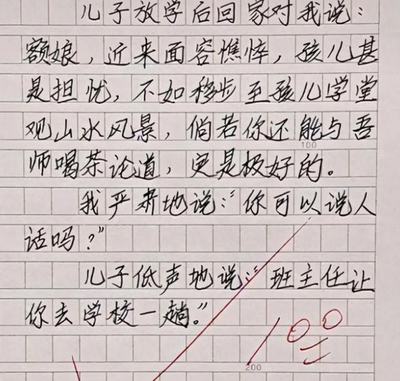 儿子放学后回家对我说：
额娘，近来面容憔悴，孩儿甚
是担忧，不如移步至孩儿学堂
观山水风景，倘若你还能与吾
师喝茶论道，更是极好的。
100
我严肃地说：“你可以说人
话吗？”
儿子低声地说：“班主任让
你去学校一趟。”
100
200